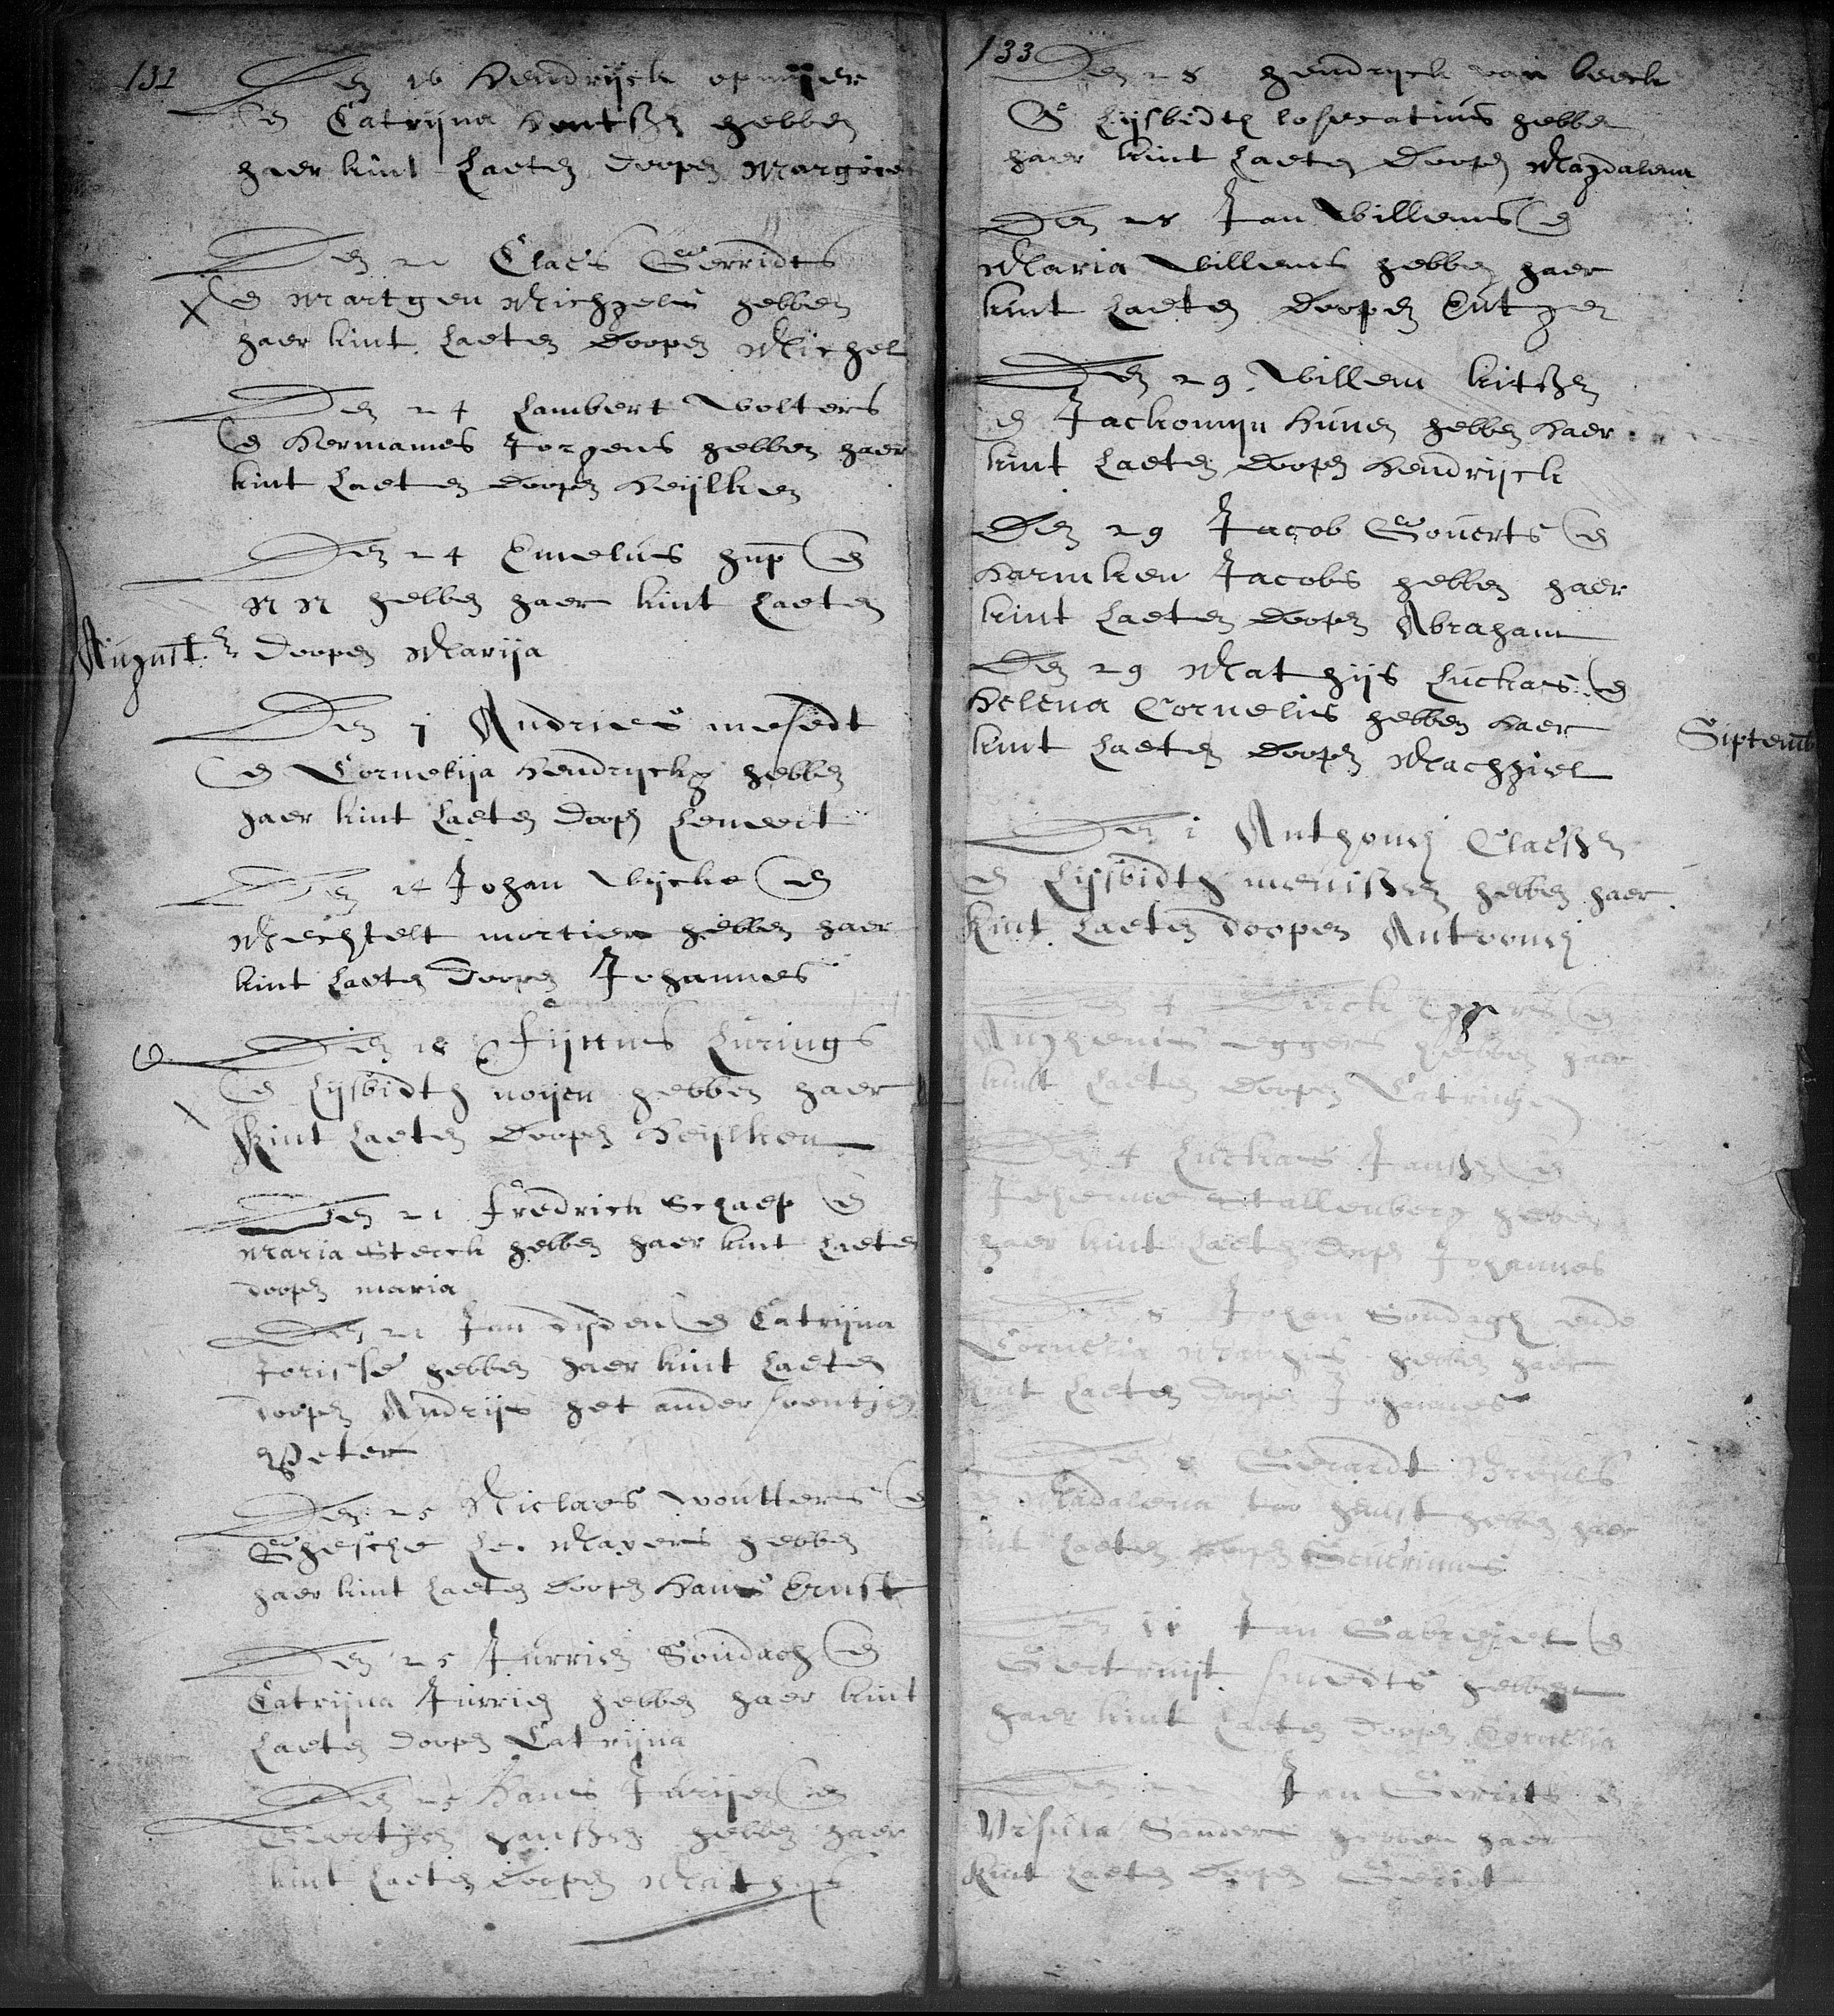 132
Den 16 Hendrijck opmijer
en Catrijna Hentssen hebben
haer kint Laeten doopen Margrie
Den 21 Claes Gerridts
X en Martgen Michgels hebben
haer kint Laeten doopen Michel
Den 24 Lambert Wolters
en Hermames Jorgens hebben haer
kint Laeten doopen Heijlken
Den 24 Emelus hup en
NN hebben haer kint Laeten
doopen Marija
August.
Den 7 Andries mesedt
en Cornelija Hendrijckx hebben
haer kint Laeten doopen Lenert
Den 14 Johan Wijcke en
Mechtelt mortier hebben haer
kint Laeten doopen Johannes
Den 18 Lurings
en Lijsbidth noijen hebben haer
kint Laeten doopen Heijlken
Den 21 fredrick Schaep en
Maria Sterck hebben haer kint Laeten
doopen maria
Den 21 Jan dijden en Catrijna
Jorisse hebben haer kint Laeten
doopen Andrijs het ander soentjen
Peter
Den 25 Niclaes Woutters en
Ghesche Le. Mayers hebben
haer kint Laeten doopen Hans Ernst
Den 25 Jurrien Sondach en
Catrijna Jurrien hebben haer kint
Laeten doopen Catrijna
Den 25 Hans Jurijen en
Geertjen hanssen hebben haer
kint Laeten doopen Mathijs
133
Den 28 hendrijck van beeck
en Lijsbidth losecatius hebben
haer kint Laeten doopen Magdalena
Den 28 Jan Willems en
Maria Willems hebben haer
kint Laeten doopen Entgen
Den 29 Willem kitssen
en Jackomijn Hunen hebben haer
kint Laeten doopen Hendrijck
Den 29 Jacob Gouerts en
Harmken Jacobs hebben haer
kint Laeten doopen Abraham
Den 29 Mathijs Luckaes en
Helena Cornelis hebben haer
kint Laeten doopen Machgiel
Siptemb
Den 1 Anthonij Claessen
en Lijsbidth menissen hebben haer
kint Laeten doopen Antoonij
Den 4 Dirck en
eggers hebben haer
kint Laeten doopen Catringen
Den 4 Luckaes Janssen en
Jehenne Stallenberg hebben
haer kint Laeten doopen Johannes
Den 8 Johan Sondagh ende
Cornelia Mathijs hebben haer
kint Laeten doopen Johannes
Den 8 Gerardt
Madalena ter horst hebben haer
kint Laeten doopen Seuerinus
Den 11 Jan Gabregiel en
Geertruijt smedts hebben
haer kint Laeten doopen Cornelia
Den Jan Gerrits en
Ursula Sanders hebben haer
kint Laeten doopen Geriot